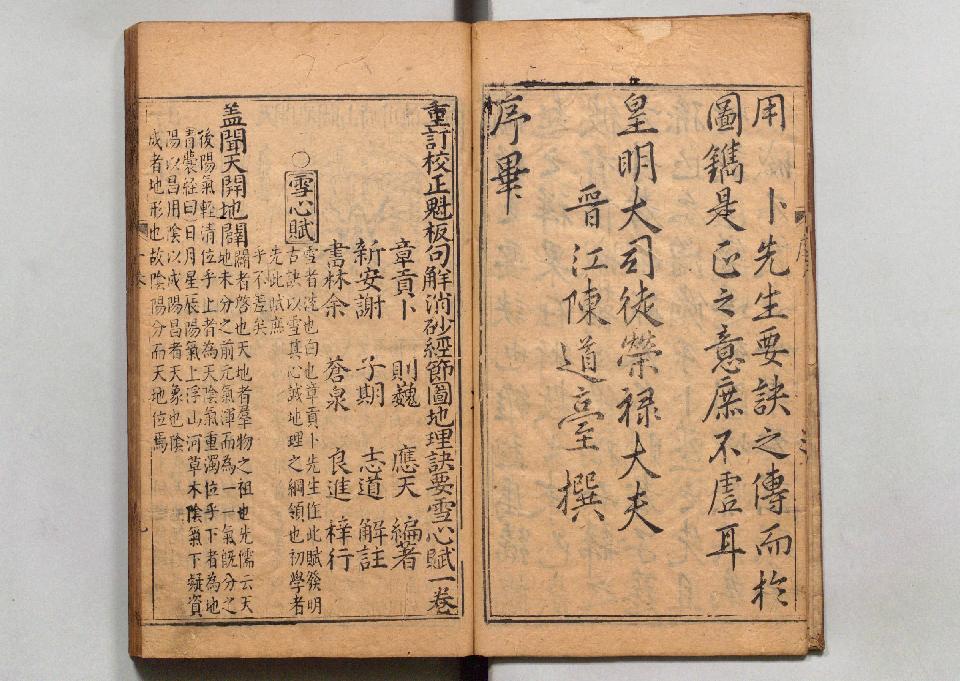 用卜先生要訣之傳而於
圖鐫是正之意庶不虛耳
皇明大司徒榮祿大夫
晉江陳道亨撰
序畢
重訂校正魁板句解消砂經節圖地理訣要雪心賦一卷
章貢卜 則巍 應天 編著
新安謝 子期 志道 解註
書林余 蒼泉 良進 梓行
○雪心賦
雪者洗也白也章貢卜先生作此賦發明
古訣以雪其心誠地理之綱領也初學者
先此賦庶
乎不差矣
盖聞天開地闢
闢者啓也天地者羣物之祖也先儒云天
地未分之前元氣渾而為一一氣既分之
後陽氣輕清位乎上者為天陰氣重濁位乎下者為地
青囊經曰日月星辰陽氣上浮山河草木陰氣下凝資
陽以昌用陰以成陽昌者天象也陰
成者地形也故陰陽分而天地位焉